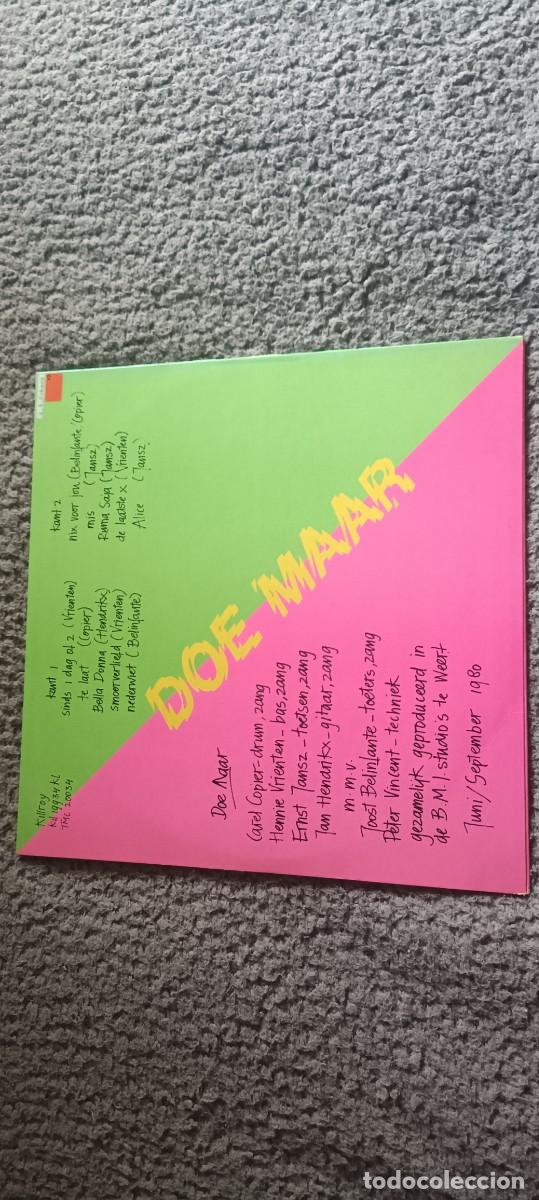 Killroy
KL 19934 KL
TMC 20034
kant 1
sinds 1 dag of 2 (Vrienten)
te laat (Copier)
Bella Donna (Hendriks)
smoorverliefd (Vrienten)
nederwiet (Belinfante)
kant 2
nix voor jou (Belinfante Copier)
mis (Jansz)
Ruma Saja (Jansz)
de laatste x (Vrienten)
Alice (Jansz)
DOE MAAR
Doe Maar
Carel Copier - drum, zang
Hennie Vrienten - bas, zang
Ernst Jansz - toetsen, zang
Jan Hendriks - gitaar, zang
m.m.v.
Joost Belinfante - toeters, zang
Peter Vincent - techniek
gezamelijk geproduceerd in
de B.M.I. studio's te Weert
Juni/September 1980
todocoleccion